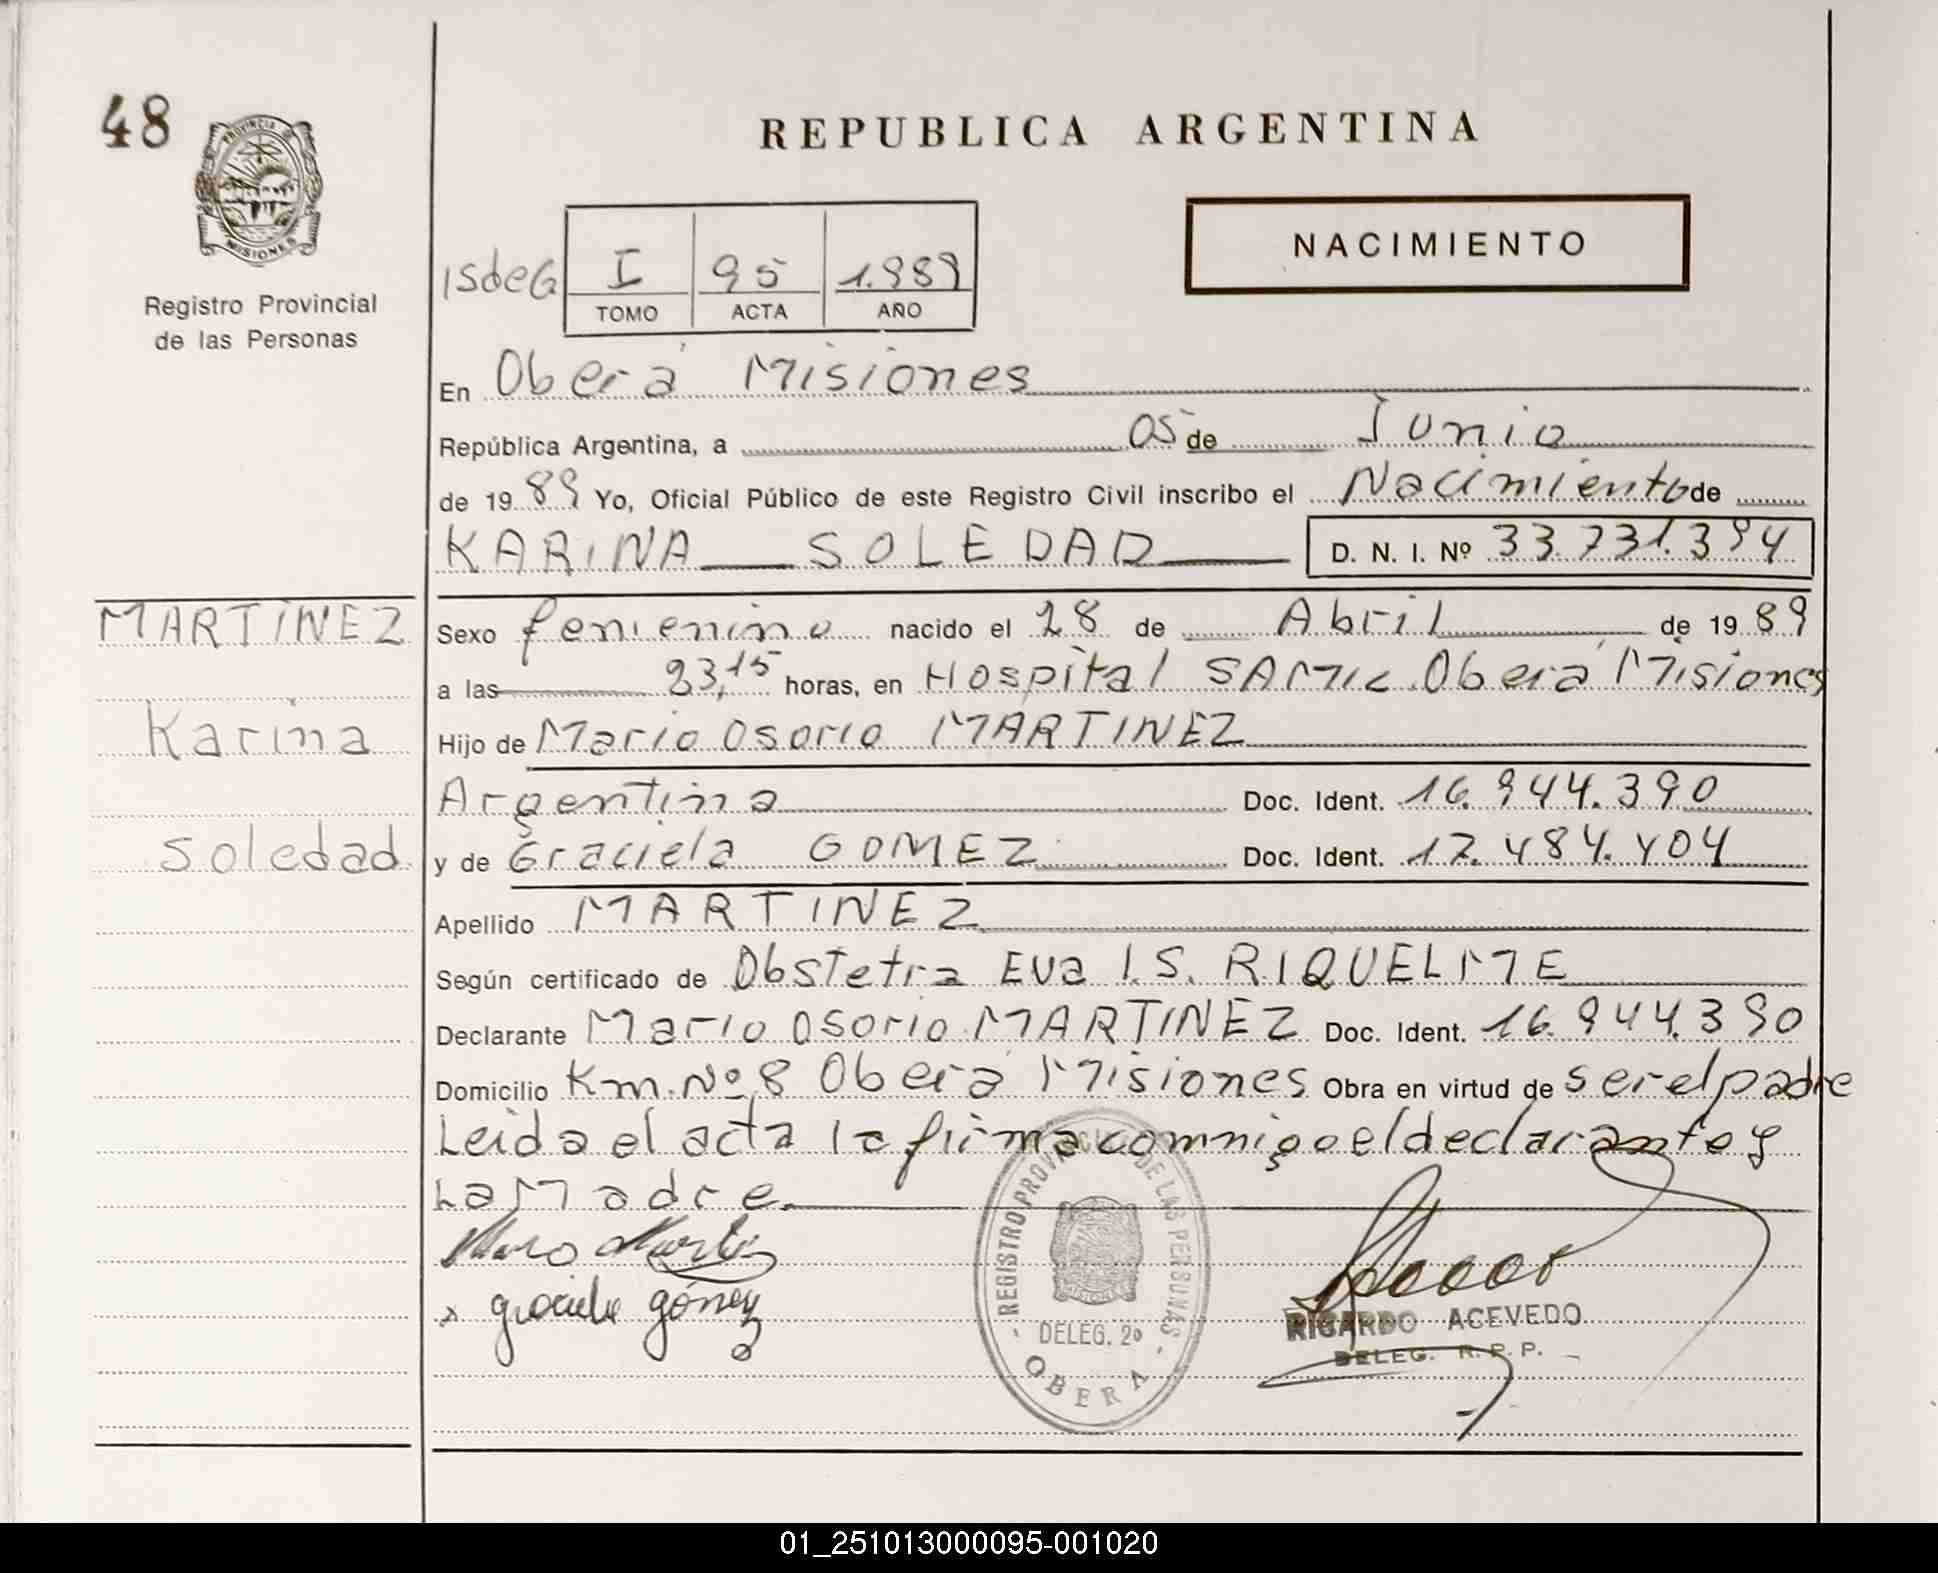 48
PROVINCIA DE
MISIONES
Registro Provincial
de las Personas
REPUBLICA ARGENTINA
NACIMIENTO
I 95 1.989
TOMO ACTA AÑO
En Oberá Misiones
República Argentina, a 05 de Junio
de 1989 Yo, Oficial Público de este Registro Civil inscribo el Nacimiento de
KARINA SOLEDAD D. N. I. Nº 33.731.394
MARTINEZ
Karina
Soledad
Sexo femenino nacido el 28 de Abril de 1989
a las 23,15 horas, en Hospital SAMIC Oberá Misiones
Hijo de Mario Osorio MARTINEZ
Argentina Doc. Ident. 16.944.390
y de Graciela GOMEZ Doc. Ident. 17.484.404
Apellido MARTINEZ
Según certificado de Obstetra Eva I.S. RIQUELME
Declarante Mario Osorio MARTINEZ Doc. Ident. 16.944.390
Domicilio Km. Nº 8 Oberá Misiones Obra en virtud de ser el padre
Leida el acta la firma comnigo el declarante y
La Madre.
Graciela Gómez
REGISTRO PROVINCIAL DE LAS PERSONAS
DELEG. 2º
OBERA
RICARDO ACEVEDO
DELEG. R. P. P.
01_251013000095-001020